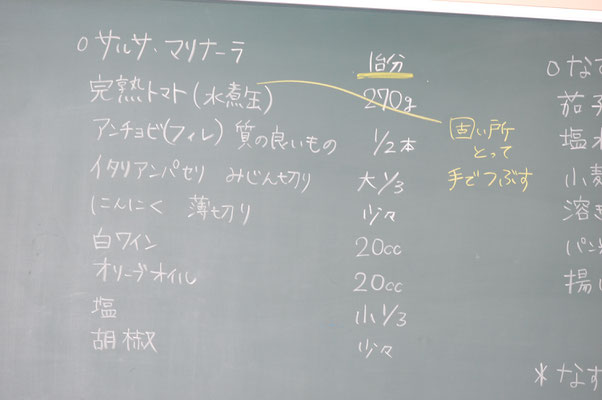 ○サルサ・マリナーラ
1台分
完熟トマト(水煮缶) 270g
アンチョビ(フィレ) 質の良いもの 1/2本
イタリアンパセリ みじん切り 大1/3
にんにく 薄切り 少々
白ワイン 20cc
オリーブオイル 20cc
塩 小1/3
胡椒 少々
固い所
とって
手でつぶす
○なす
茄子
塩
小麦
溶き
パン
揚げ
*なす